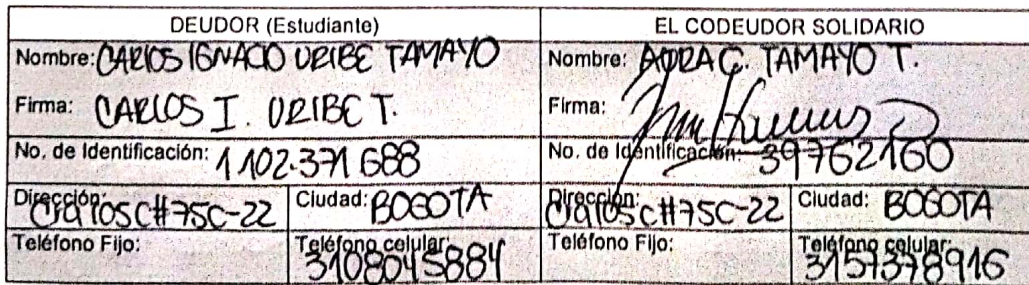 DEUDOR (Estudiante)
EL CODEUDOR SOLIDARIO
Nombre: CARLOS IGNACIO URIBE TAMAYO
Nombre: AURA C. TAMAYO T.
Firma: CARLOS I. URIBE T.
Firma:
No. de Identificación: 1102.371688
No. de Identificación: 39762160
Dirección: Cra105C#75C-22
Ciudad: BOGOTA
Dirección: Cra105C#75C-22
Ciudad: BOGOTA
Teléfono Fijo:
Teléfono celular: 3108045884
Teléfono Fijo:
Teléfono celular: 3157378916